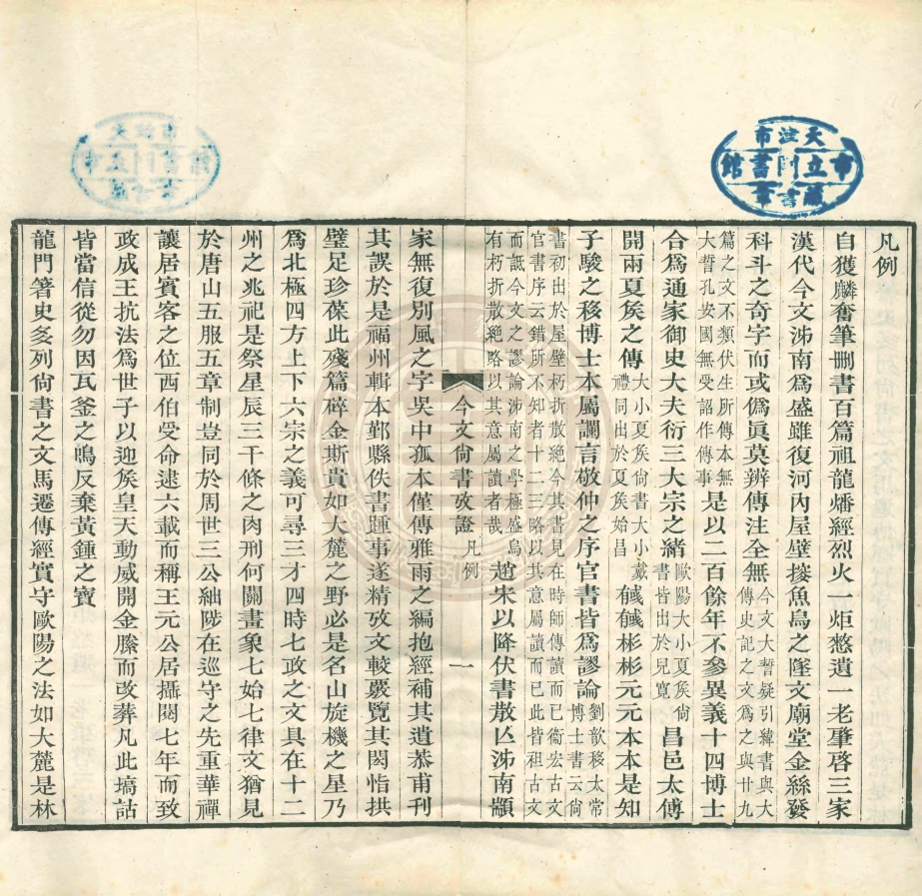 天津市
市立圖書館
藏書章
凡例
自獲麟奮筆刪書百篇祖龍燔經烈火一炬憖遺一老肇啓三家
漢代今文泲南爲盛雖復河內屋壁掇魚鳥之墜文廟堂金絲發
科斗之奇字而或僞眞莫辨傳注全無今文大誓疑引緯書與大傳史記之文爲之與廿九
篇之文不類伏生所傳本無大誓孔安國無受詔作傳事是以二百餘年不參異義十四博士
合爲通家御史大夫衍三大宗之緒歐陽大小夏矦尙書皆出於兒寬昌邑太傅
開兩夏矦之傳大小夏矦尙書大小戴禮同出於夏矦始昌彬彬元元本本是知
子駿之移博士本屬讕言敬仲之序官書皆爲謬論劉歆移太常博士書云尙
書初出於屋壁朽折散絕今其書見在時師傳讀而已衞宏古文官書序云錯所不知者十二三略以其意屬讀而已此皆祖古文
而詆今文之謬論泲南之學極盛烏有朽折散絕略以其意屬讀者哉趙宋以降伏書散亾泲南顓
今文尙書攷證 凡例 一
家無復別風之字吳中孤本僅傳雅雨之編抱經補其遺恭甫刊
其誤於是福州輯本鄞縣佚書踵事遂精攷文較覈覽其閎恉拱
璧足珍葆此殘篇碎金斯貴如大麓之野必是名山旋機之星乃
爲北極四方上下六宗之義可尋三才四時七政之文具在十二
州之兆祀是祭星辰三千條之肉刑何關畫象七始七律文猶見
於唐山五服五章制豈同於周世三公絀陟在巡守之先重華禪
讓居賓客之位西伯受命逮六載而稱王元公居攝閱七年而致
政成王抗法爲世子以迎矦皇天動威開金縢而改葬凡此塙詁
皆當信從勿因瓦釜之鳴反棄黃鍾之寶
龍門箸史多列尙書之文馬遷傳經實守歐陽之法如大麓是林